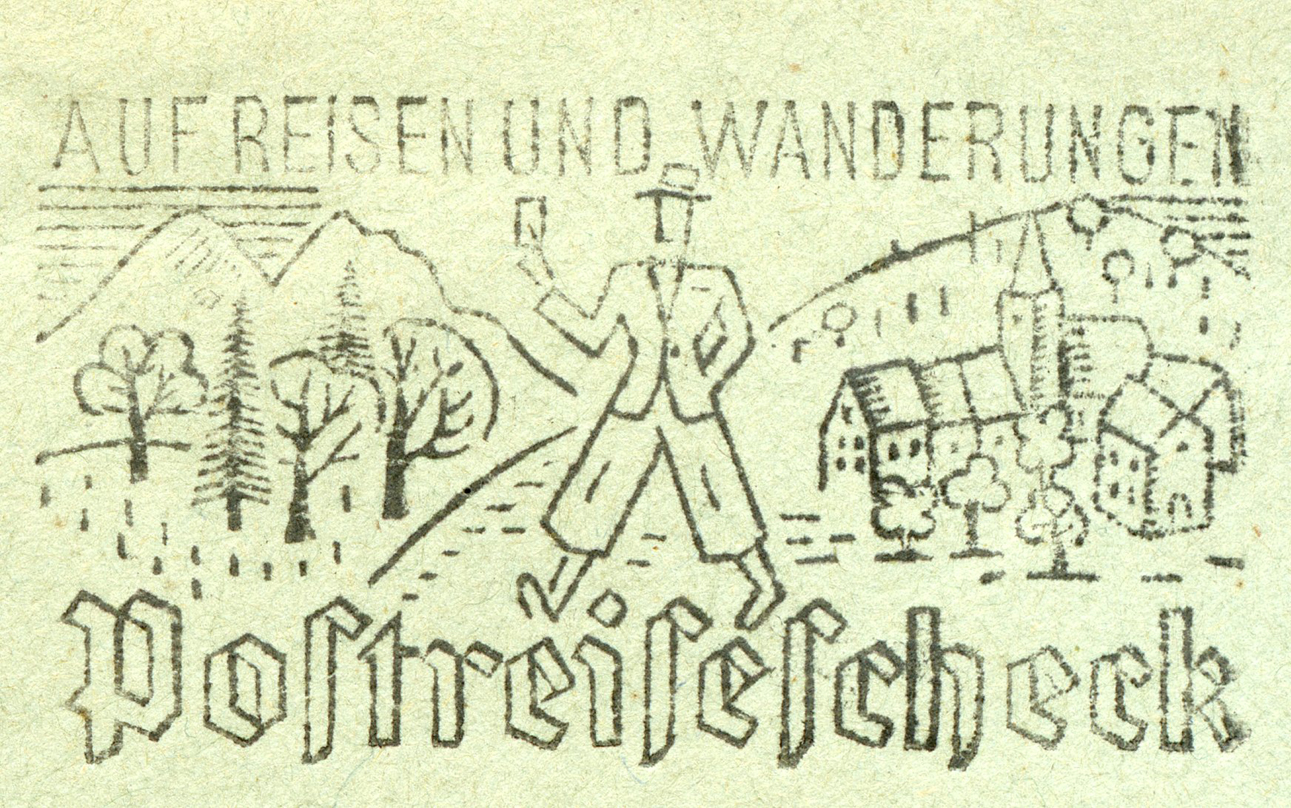 AUF REISEN UND WANDERUNGEN
Poſtreiſeſcheck